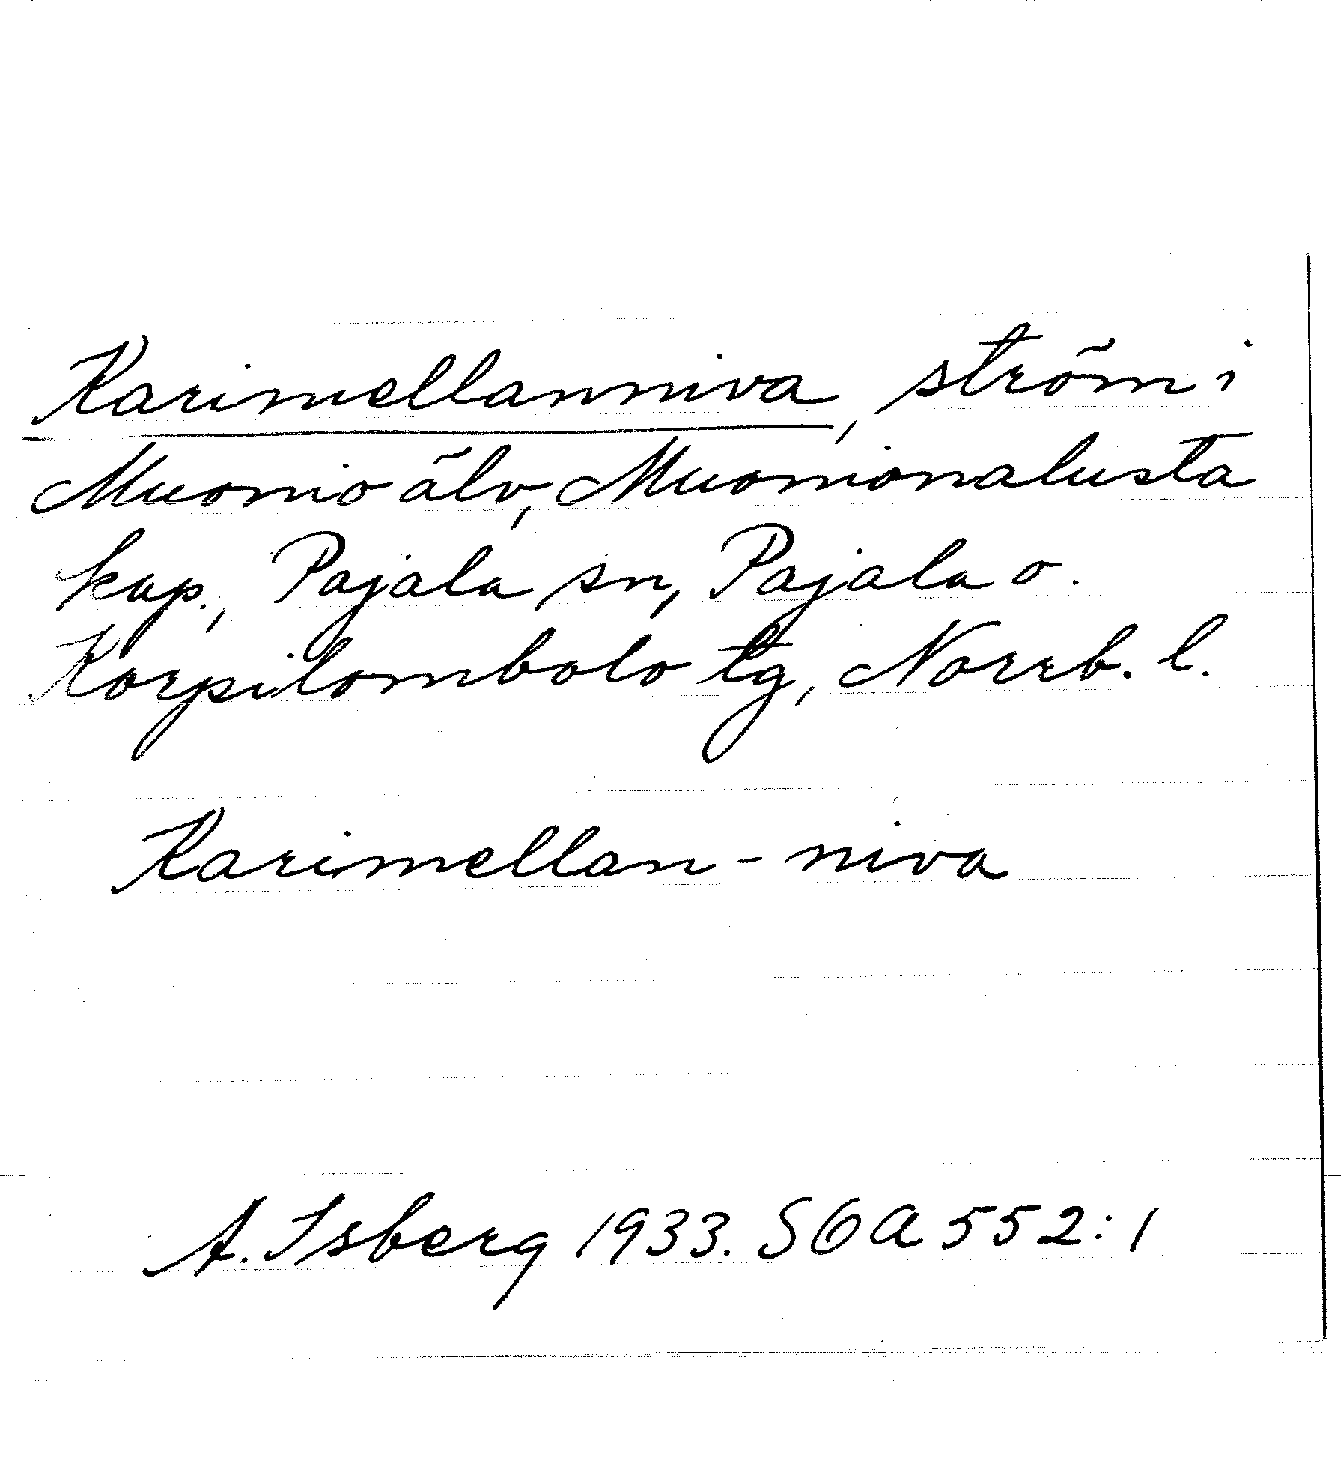 Karimellanniva, ström i
Muonio älv, Muonionalusta
kap., Pajala sn, Pajala o.
Korpilombolo tg, Norrb. l.
Karimellan-niva
A. Isberg 1933. SOA 552:1